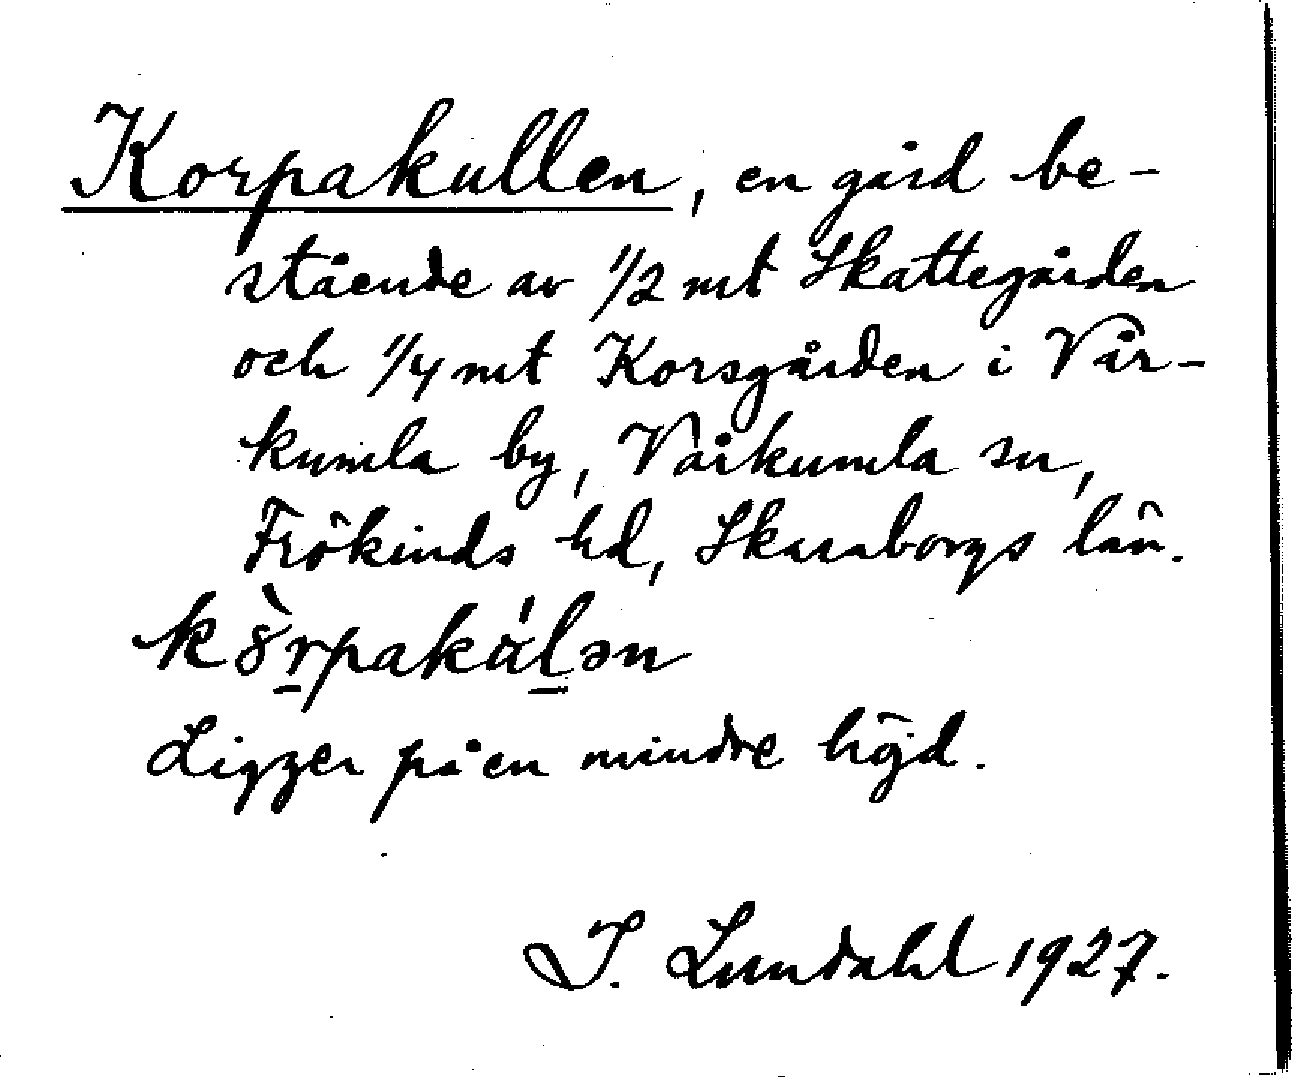 Korpakullen, en gård be-
stående av 1/2 mt Skattegården
och 1/4 mt Korsgården i Vår-
kumla by, Vårkumla sn,
Frökinds hd, Skaraborgs län.
kȍrpakúlən
Ligger på en mindre höjd.
I. Lundahl 1927.